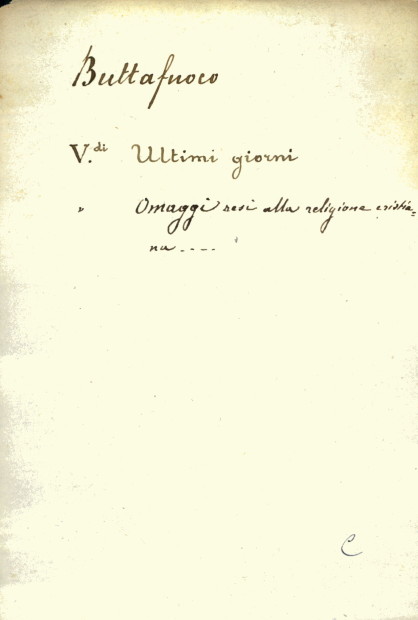 Buttafuoco
V.di Ultimi giorni
" Omaggi resi alla religione cristia=
na ....
C